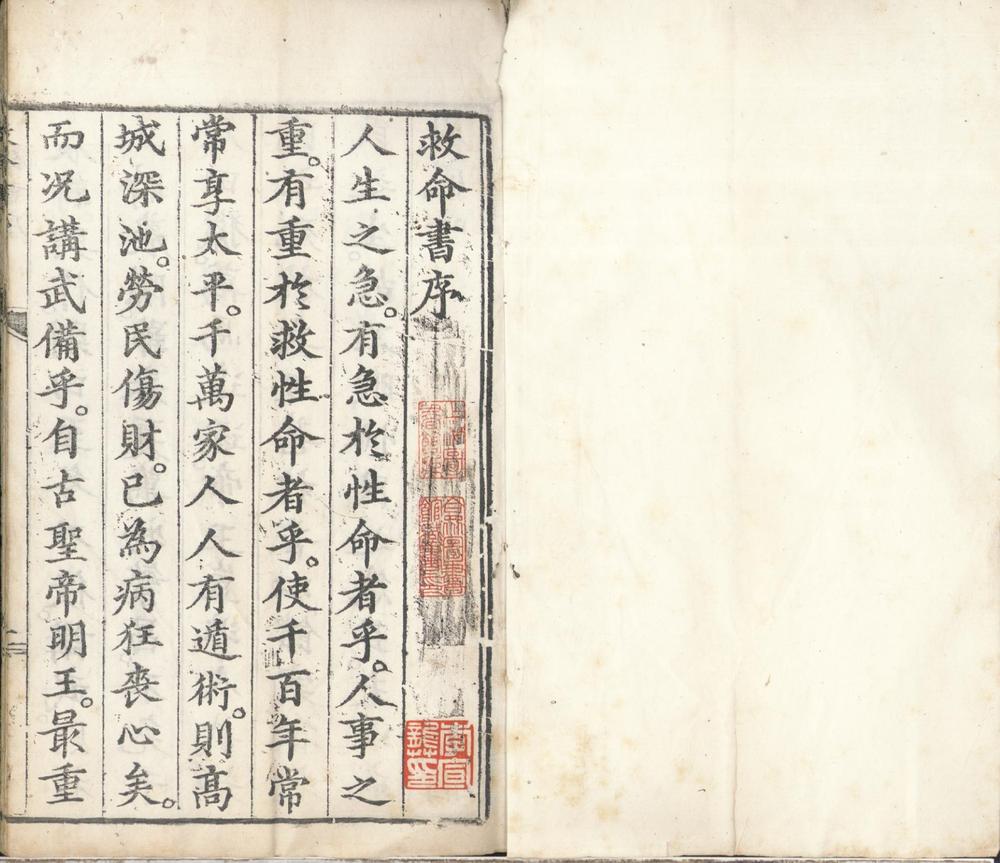 救命書序
人生之急。有急於性命者乎。人事之
重。有重於救性命者乎。使千百年常
常享太平。千萬家人人有遁術。則高
城深池。勞民傷財。已為病狂喪心矣。
而况講武備乎。自古聖帝明王。最重